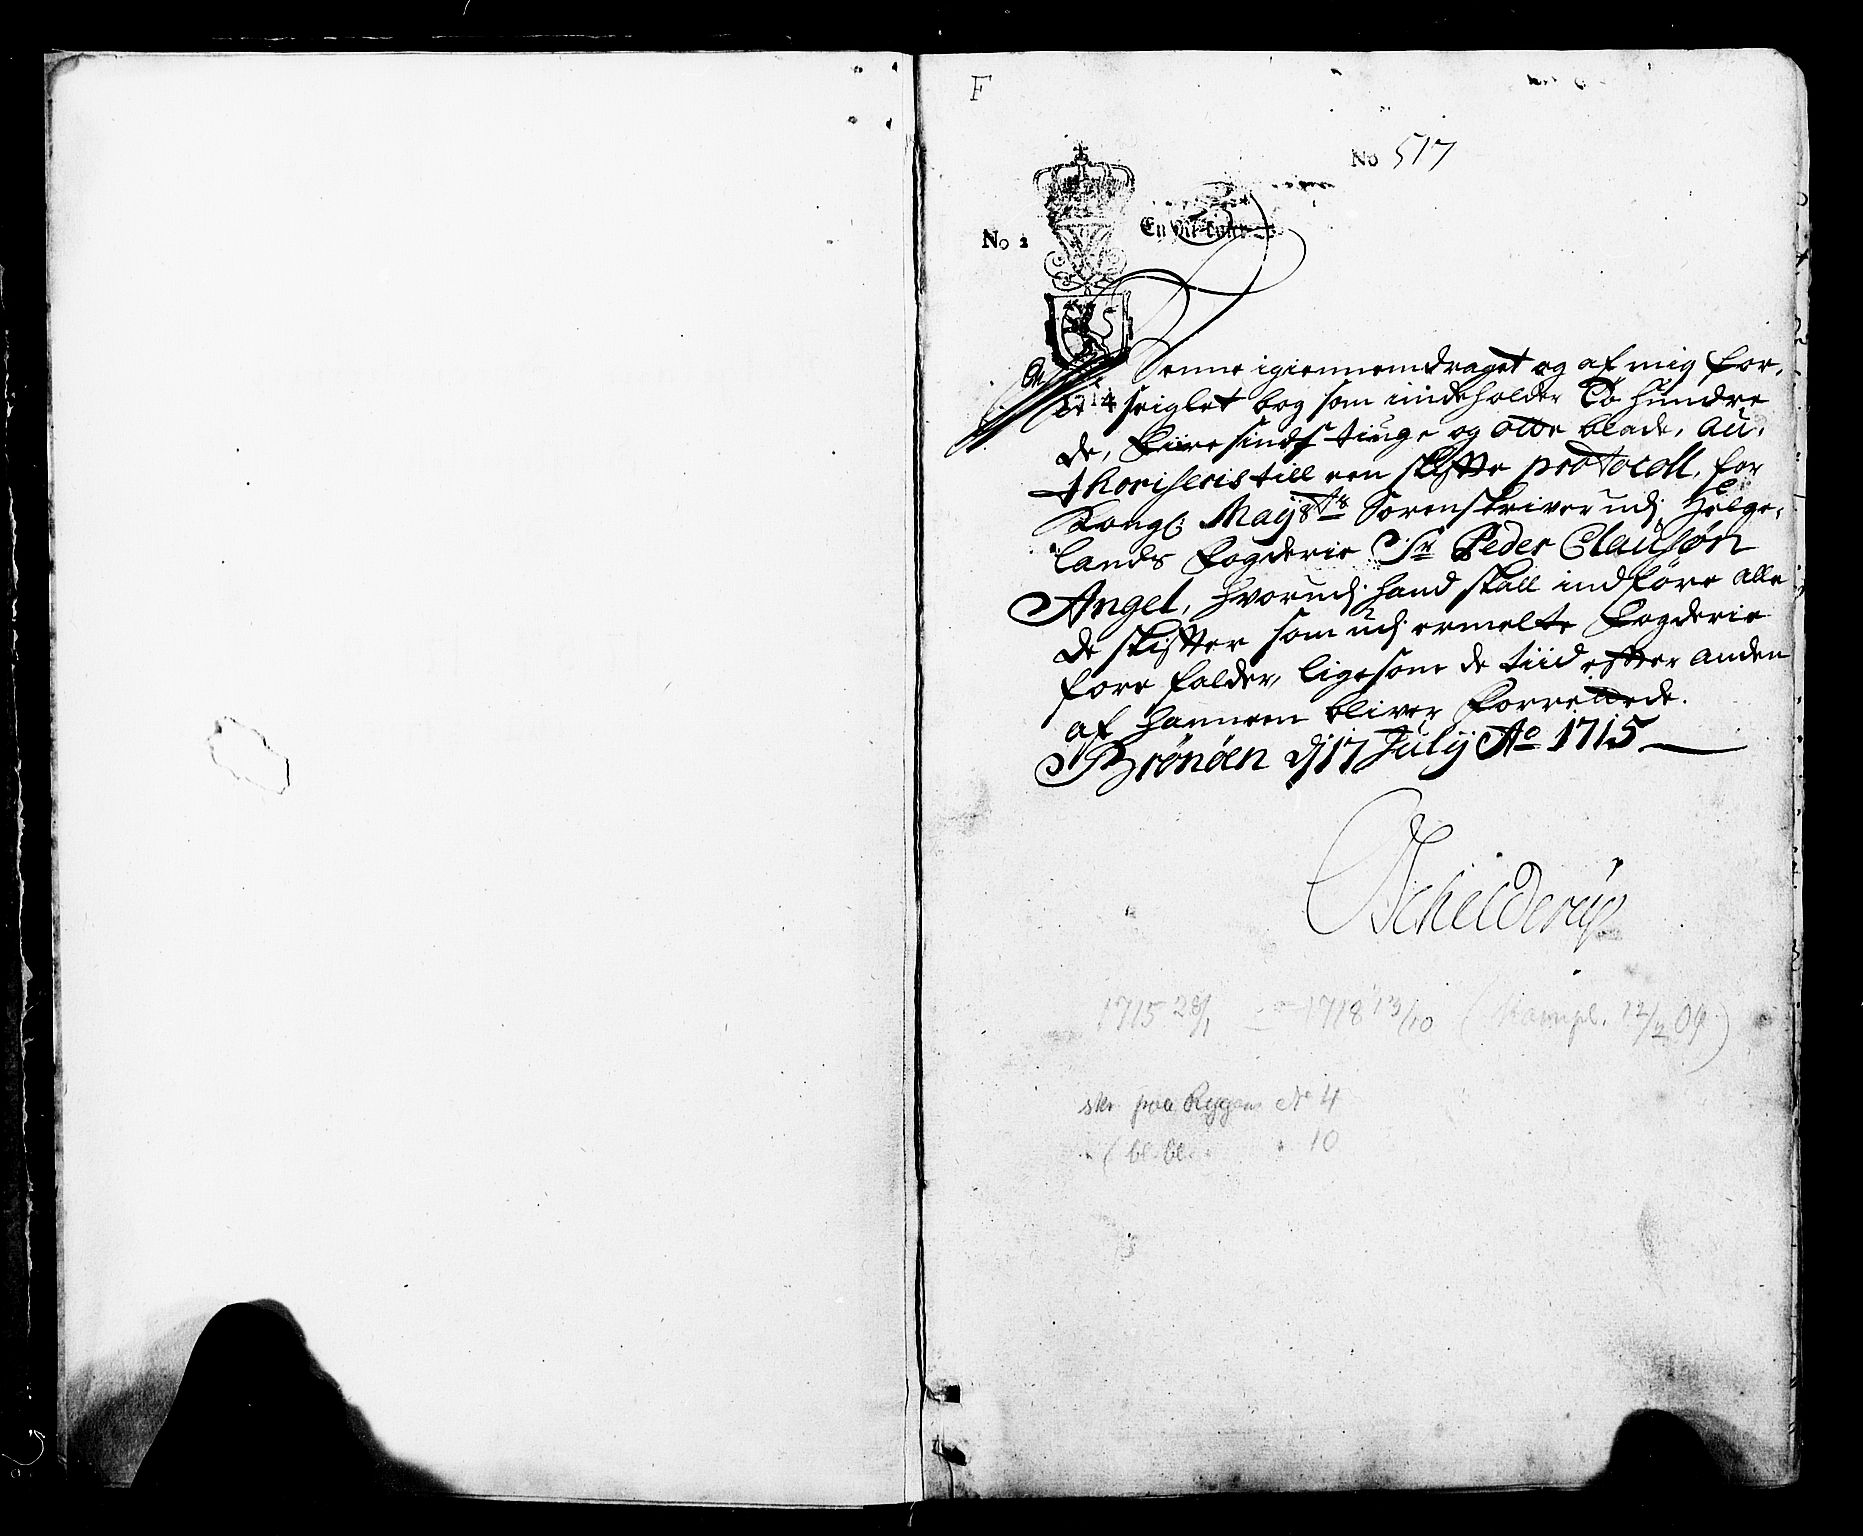 F
No 517
No 2
Denne igiennemdraget og af mig for,
1714 seiglet bog som indeholder Tö hundre
de, fiiresindstiuge og otte blade, au,
thoriseris till een skifte protocoll, for
Kongl: Mayts Sorenskriver udj Helge,
lands fogderie Sr Peder Claussøn
Angel, hvorudj hand skall indføre alle
de skifter som udj ermelte fogderie
fore falder, ligesom de tiid efter anden
af hannem bliver forrettede.
Brönöen dj 17 July Ao 1715
Schelderup
1715 28/1 — 1718 13/10 (Stempl. 12/2 09)
skr. paa Ryggen No 4
10